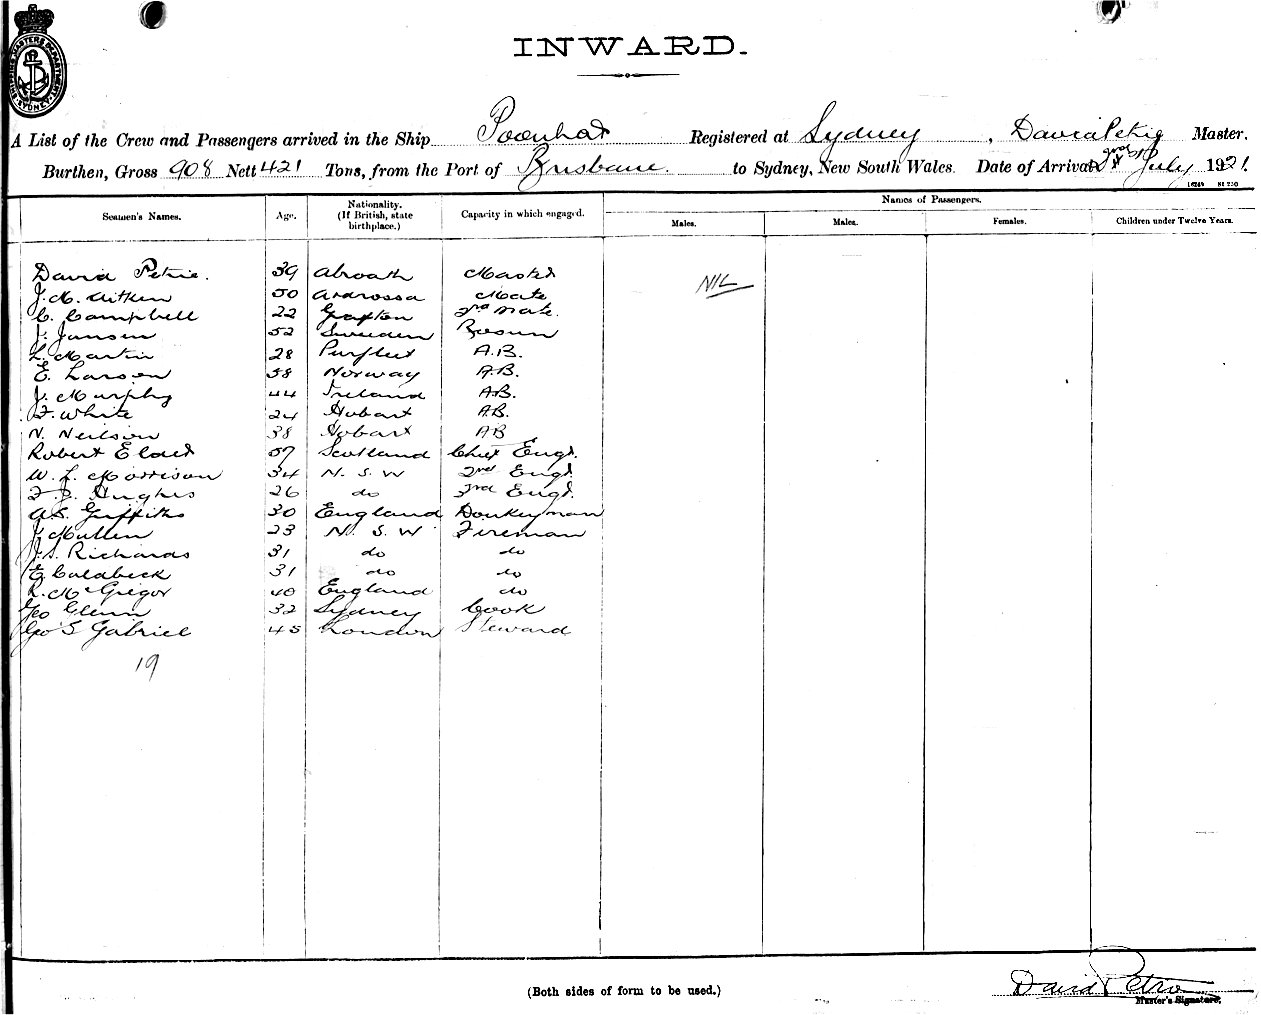 SHIPPING MASTERS DEPARTMENT SYDNEY
INWARD.
A List of the Crew and Passengers arrived in the Ship Registered at Sydney, David Petrie Master.
Burthen, Gross 908 Nett 421 Tons, from the Port of Brisbane. to Sydney, New South Wales. Date of Arrival 2nd July 1921.
Names of Passengers.
Seamen's Names. Age. Nationality. (If British, state birthplace.) Capacity in which engaged. Males. Males. Females. Children under Twelve Years.
David Petrie. 39 Abroath Master NIL
J. M. Aitken 50 Ardrossa Mate
C. Campbell 22 Grafton 2nd Mate.
J. Jansen 52 Sweden Bosun
L. Martin 28 Purfleet A.B.
E. Larsen 58 Norway A.B.
J. Murphy 44 Ireland A.B.
F. White 24 Hobart A.B.
N. Neilson 38 Hobart AB
Robert 57 Scotland Chief Engr.
W. L. Morrison 34 N. S. W 2nd Engr.
Hughes 26 do 3rd Engr.
A.S. Griffiths 30 England Donkeyman
J Mullen 23 N. S. W Fireman
J.S. Richards 31 do do
E Caldbeck 31 do do
R. McGregor 40 England do
Geo Glenn 32 Sydney Cook
Geo S Gabriel 45 London Steward
19
David Petrie
(Both sides of form to be used.)
Master's Signature.